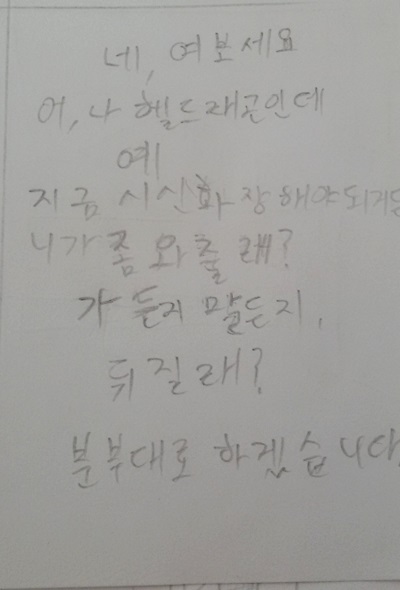 네, 여보세요
어, 나 헬드재곤인데
예
지금 시신화장해야되거든
니가 좀 와줄래?
가든지 말든지,
뒤질래?
분부대로 하겠습니다.